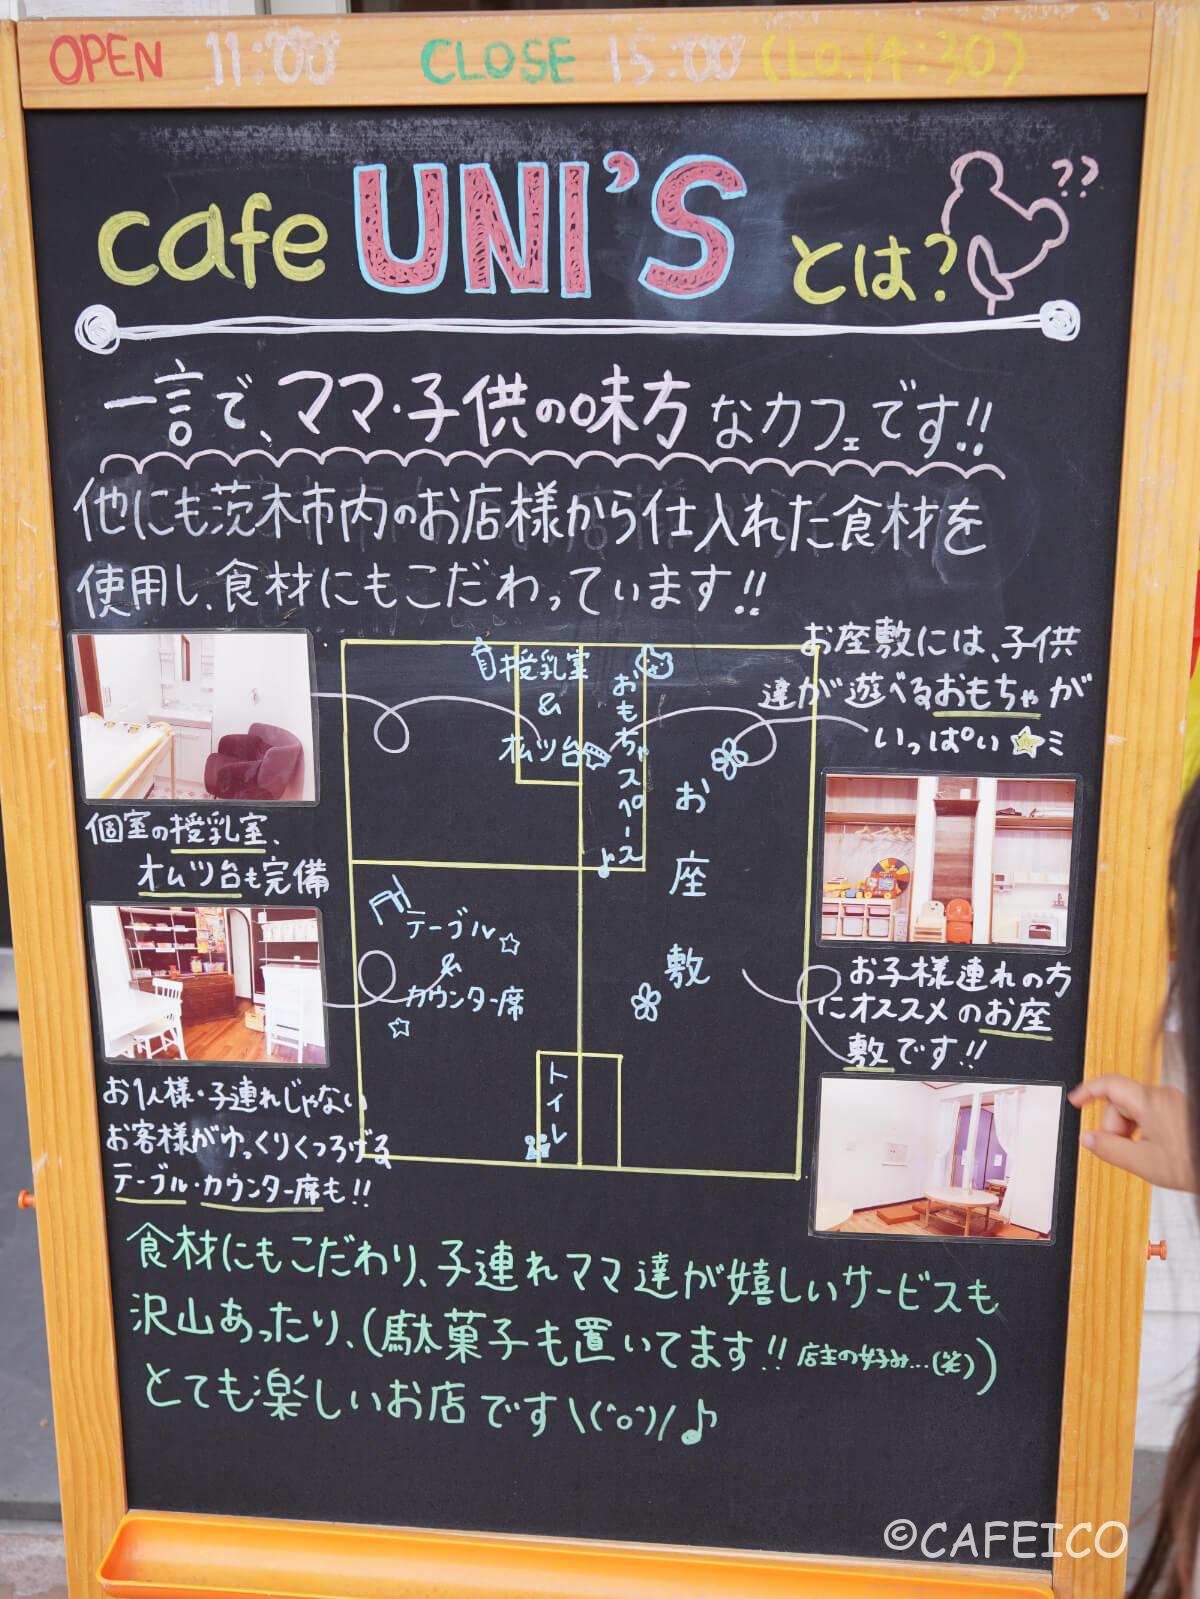 OPEN 11:00 CLOSE 15:00 (LO.14:30)
cafe UNI'S とは? ??
一言で、ママ・子供の味方なカフェです!!
他にも茨木市内のお店様から仕入れた食材を
使用し、食材にもこだわっています!!
お座敷には、子供
達が遊べるおもちゃが
いっぱい☆ミ
授乳室
&
オムツ台
おもちゃスペース♪
お座敷
個室の授乳室、
オムツ台も完備
テーブル☆
&
カウンター席
☆
お子様連れの方
にオススメのお座
敷です!!
トイレ
お1人様・子連れじゃない
お客様がゆっくりくつろげる
テーブル・カウンター席も!!
食材にもこだわり、子連れママ達が嬉しいサービスも
沢山あったり、(駄菓子も置いてます!! 店主の好み...(笑))
とても楽しいお店です\(^o^)/♪
©CAFEICO